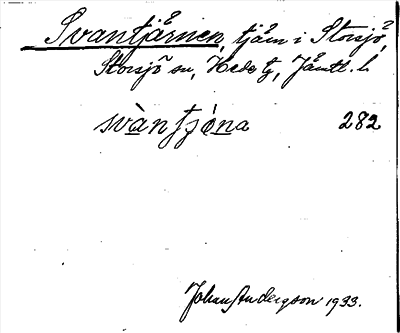 Svantjärnen, tjärn i Storsjö,
Storsjö sn, Hede tg, Jämtl. l.
svàntjó̱na 282
Johan Andergson 1933.